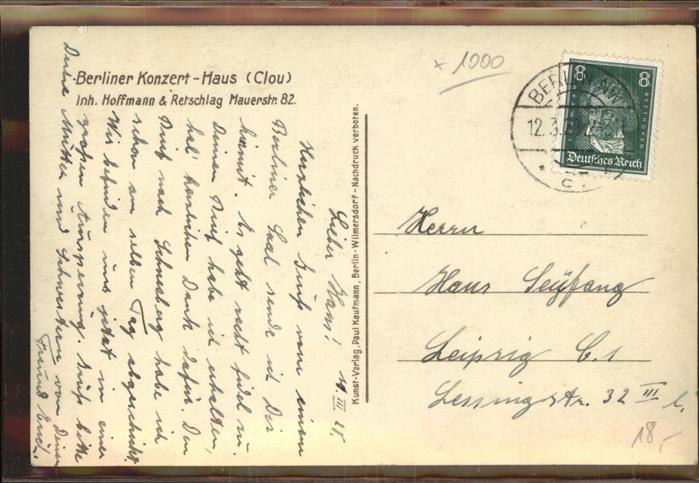 Berliner Konzert-Haus (Clou)
Inh. Hoffmann & Retschlag Mauerstr. 82.
× 1000
BERLIN NW
12.3.
8 8
Deutsches Reich
Kunst-Verlag, Paul Kaufmann, Berlin-Wilmersdorf - Nachdruck verboten.
Herrn
Hans Seyfang
Leipzig C.1
Lessingstr. 32 III l.
18,-
Lieber Hans!
Herzlichen Gruß von einem
Berliner Lokal sende ich Dir
hiermit. Es geht recht fidel zu.
Deinen Brief habe ich erhalten,
hab' herzlichen Dank dafür. Den
Brief nach Schneeberg habe ich
schon am selben Tag abgeschickt.
Wir befinden uns jetzt in einer
großen Aussperrung. Gruß bitte
Deine Mutter und Schwestern von Deinem
Freund